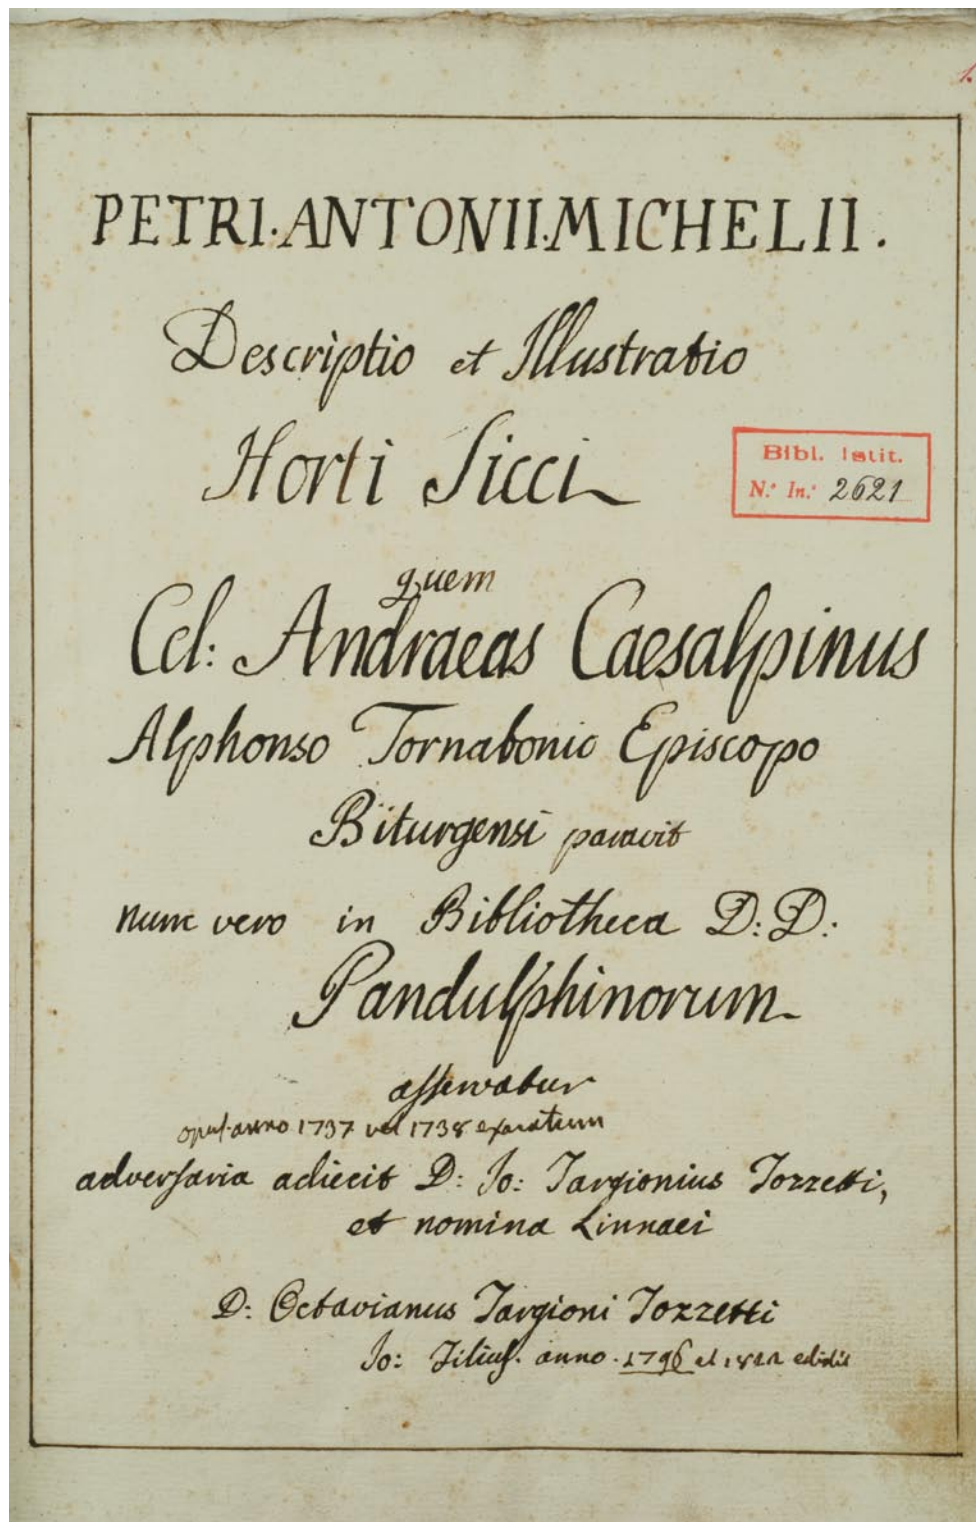 1.
PETRI·ANTONII·MICHELII.
Descriptio et Illustratio
Horti Sicci
Bibl. Istit.
N.º In.º 2621
quem
Cel: Andraeas Caesalpinus
Alphonso Tornabonio Episcopo
Biturgensi paravit
nunc vero in Bibliotheca D: D:
Pandulphinorum
asservatur
opus anno 1737 vel 1738 exaratum
adversaria adiecit D: Jo: Targionius Tozzetti,
et nomina Linnaei
D: Octavianus Targioni Tozzetti
Jo: Filius. anno. 1796 et edidit